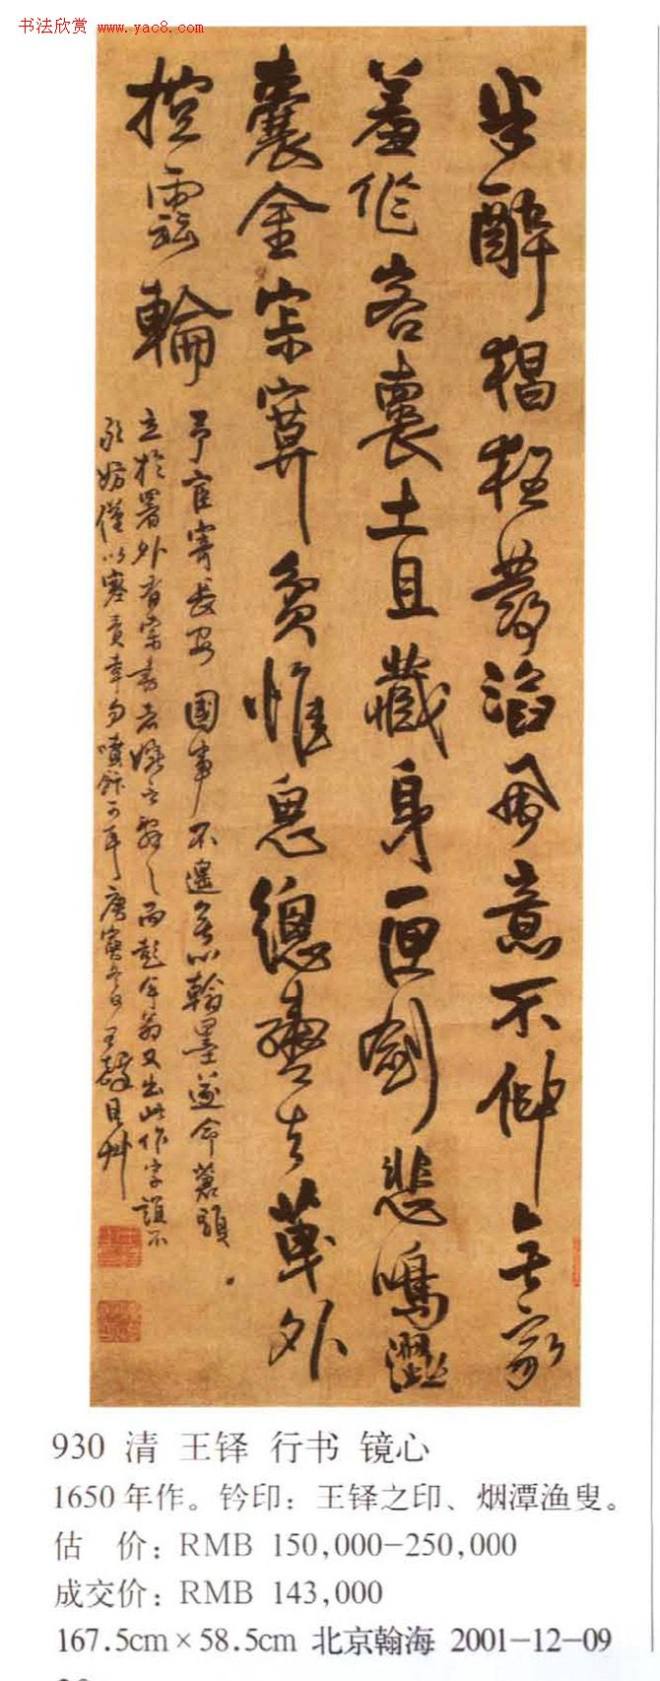 书法欣赏 www.yac8.com
半醉猖狂發 風意不伸無家
羞作客裹土且藏身匣劍悲鳴澀
囊金宗算貧惟思總 去 外
控雲輪
予官寄長安國事不遑 以翰墨遂命蒼頭
立於署外有索書者 之 而彭年翁又出此作字誰不
以塞責幸勿噴飯可耳庚寅 王鐸具艸
930 清 王铎 行书 镜心
1650年作。钤印：王铎之印、烟潭渔叟。
估 价：RMB 150,000-250,000
成交价：RMB 143,000
167.5cm×58.5cm 北京翰海 2001-12-09